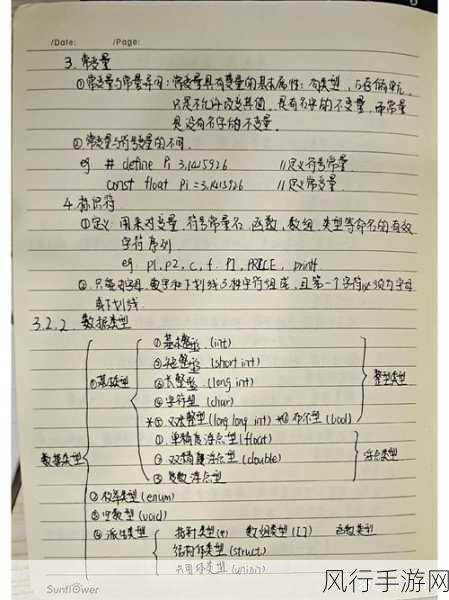 /Date: /Page:
3. 常变量
①常变量与常量异同：常变量具有变量的基本属性：有类型，占存储单元，
只是不允许改变其值，是有名字的不变量，而常量
是没有名字的不变量.
②常变量与符号常量的不同.
eg # define Pi 3.1415926 //定义符号常量
const float pi = 3.1415926 //定义常变量
4. 标识符
①定义：用来对变量，符号常量名，函数，数组，类型等命名的有效
字符序列
eg. p1, p2, c, f. PI, PRICE, printf
②.只能由字母.数字和下划线3种字符组成，且第一个字符必须为字母
或下划线.
3.2.2. 数据类型
①基本整型 (int)
②短整型 (short int)
①基本类型 ③长整型 (long int) 整型类型
④字符型 (char)
*⑤双长整型 (long long int) *⑥布尔型 (bool)
①单精度浮点型 (float)
数据类型 ②双精度浮点型 (double) 浮点类型
③复数浮点型
②枚举类型 (enum)
③空类型 (void)
④派生类型 指针类型(*) 数组类型([]) 函数类型
结构体类型 (struct)
共用体类型 (union)
Sunflower
风行手游网